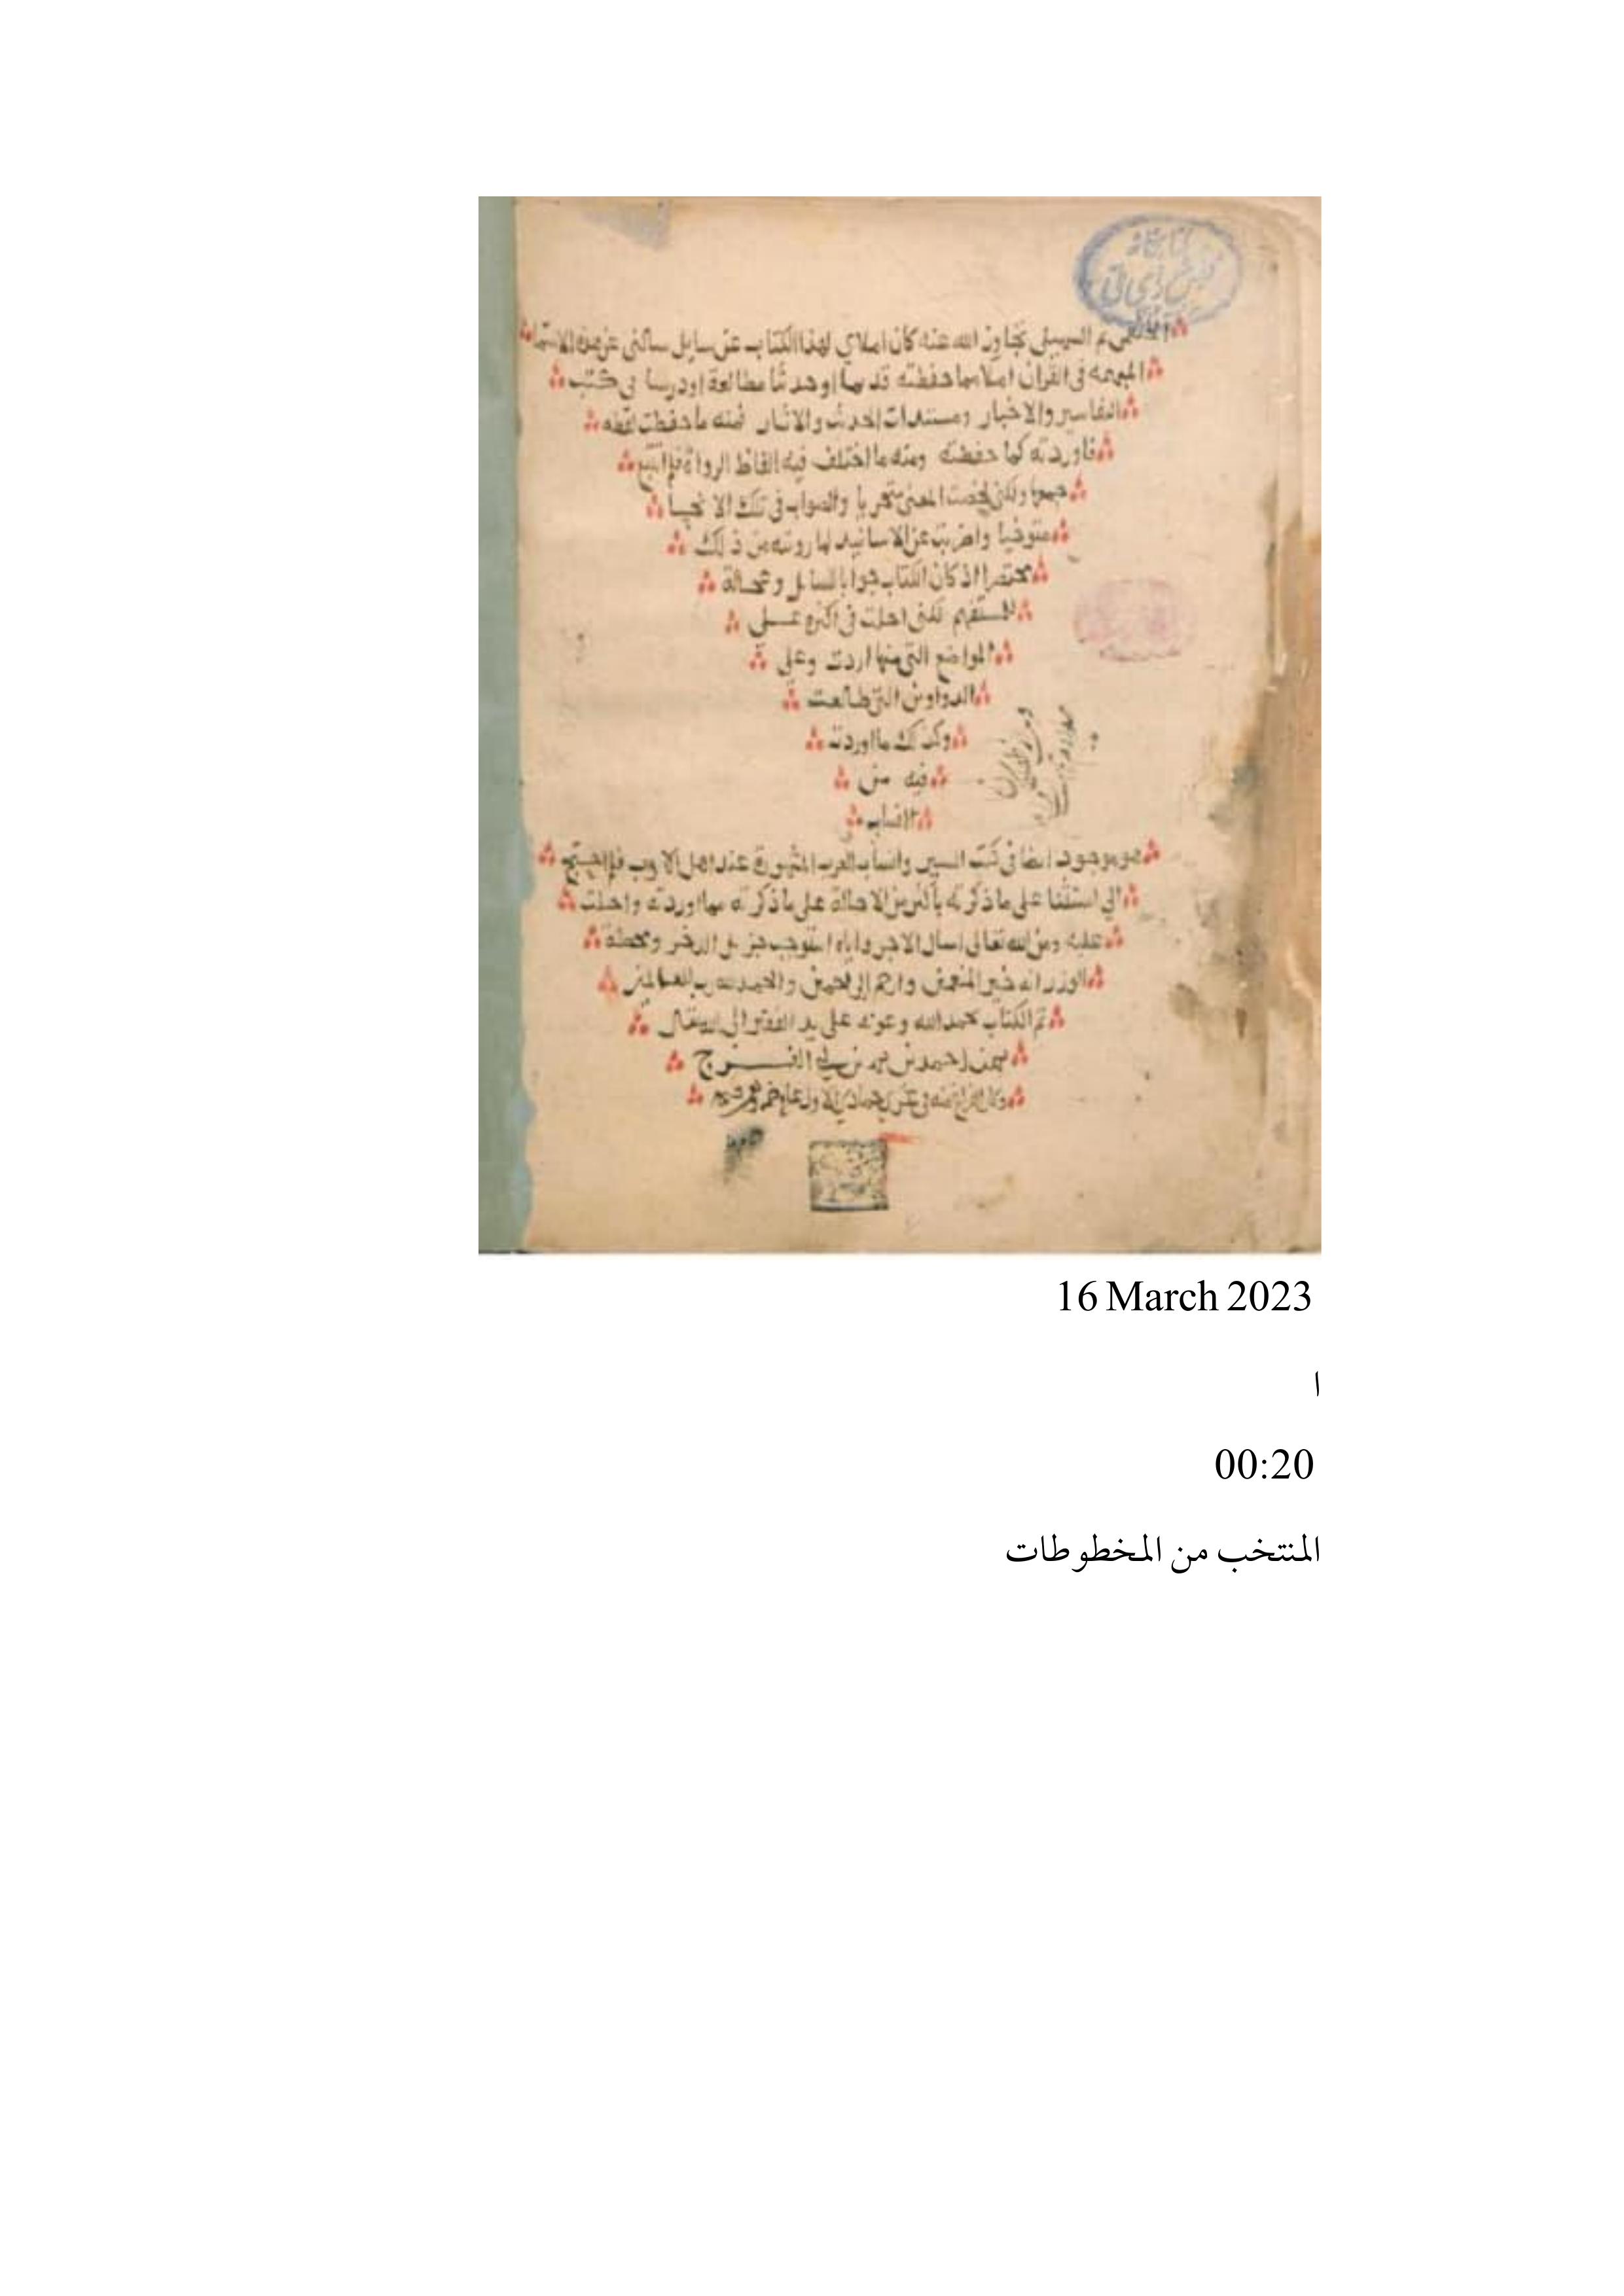 السهيلي تجاوز الله عنه كان املاي لهذا الكتاب عن سايل سالني عن هذه الاسما
المبهمه في القران املا مما حفظته قديما او حديثا مطالعة او درسا في كتب
التفاسير والاخبار ومسندات الحديث والاثار فمنه ما حفظت لفظه
فاوردته كما حفظته ومنه ما اختلف فيه الفاظ الرواة فلم اتتبع
جميعها ولكني لخصت المعنى متحريا والصواب في تلك الانحيا
متوخيا واضربت عن الاسانيد لما رويته من ذلك
مختصرا اذ كان الكتاب جوابا لسايل وعجالة
لمستفهم لكني احلت في اكثره على
المواضع التي منها اردت وعلى
الدواوين التي طالعت
وكذلك ما اوردته
فيه من
انساب
هو موجود ايضا في كتب السير وانساب العرب المشهورة عند اهل الادب فلم احتج
الي على ما ذكرته باكثر من الاحالة على ما ذكرته مما اوردته واحلت
عليه ومن الله تعالى اسال الاجر واياه استوجب جزيل الذخر ومحطة
الوزر انه خير المنعمين وارحم الراحمين والحمد لله رب العالمين
تم الكتاب بحمد الله وعونه على يد الفقير الى الله تعالى
احمد بن بن ابي الفرج
وكان الفراغ منه في جمادى الاول
16 March 2023
ا
00:20
المنتخب من المخطوطات